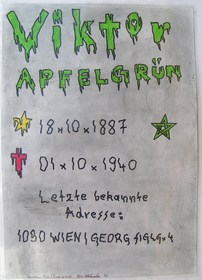 Viktor
APFELGRÜN
18 x 10 x 1887
01 x 10 x 1940
Letzte bekannte
Adresse:
1090 WIEN | GEORG